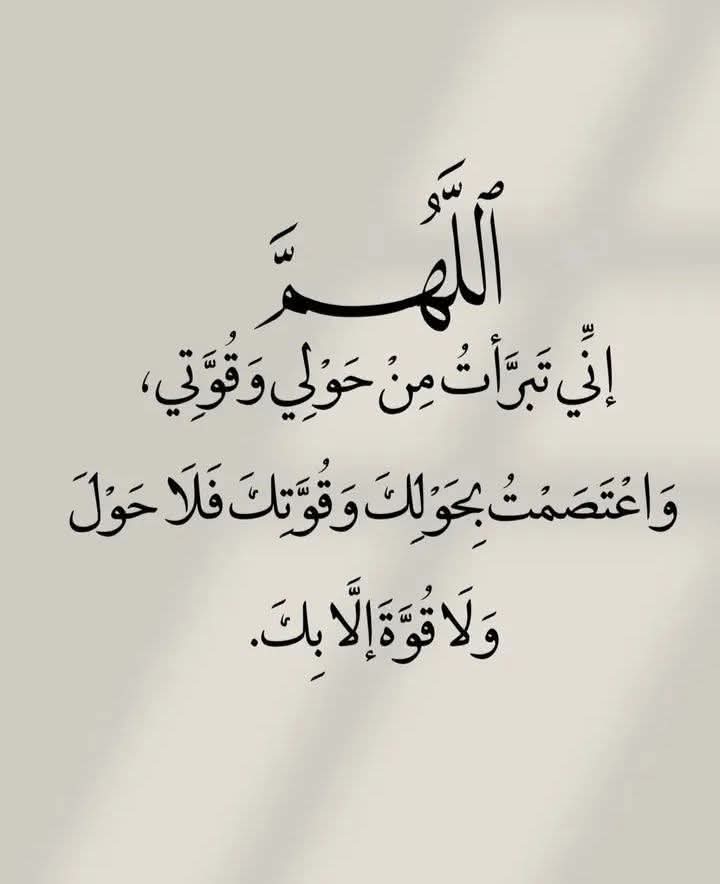 ٱللَّهُمَّ
إنِّي تَبرَّأتُ مِنْ حَوْلِي وَقُوَّتِي،
وَاعْتَصَمْتُ بِحَوْلِكَ وَقُوَّتِكَ فَلَا حَوْلَ
وَلَا قُوَّةَ إلَّا بِكَ.